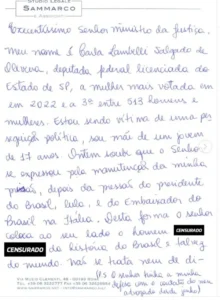 STUDIO LEGALE
SAMMARCO
Excelentíssimo Senhor ministro da Justiça,
Meu nome é Carla Zambelli Salgado de
Oliveira, deputada federal licenciada do
Estado de SP, a mulher mais votada em
em 2022 e a 3ª entre 513 homens e
mulheres. Estou sendo vítima de uma per
seguição política, sou mãe de um jovem
de 17 anos. Ontem soube que o Senhor
se expressou pela manutenção da minha
prisão, depois da pressão do presidente
do Brasil, Lula, e do Embaixador do
Brasil na Itália. Desta forma o senhor
coloca ao seu lado o homem CENSURADO
CENSURADO da história do Brasil e talvez
do mundo. Não se trata nem de di-
PS O senhor tinha a minha